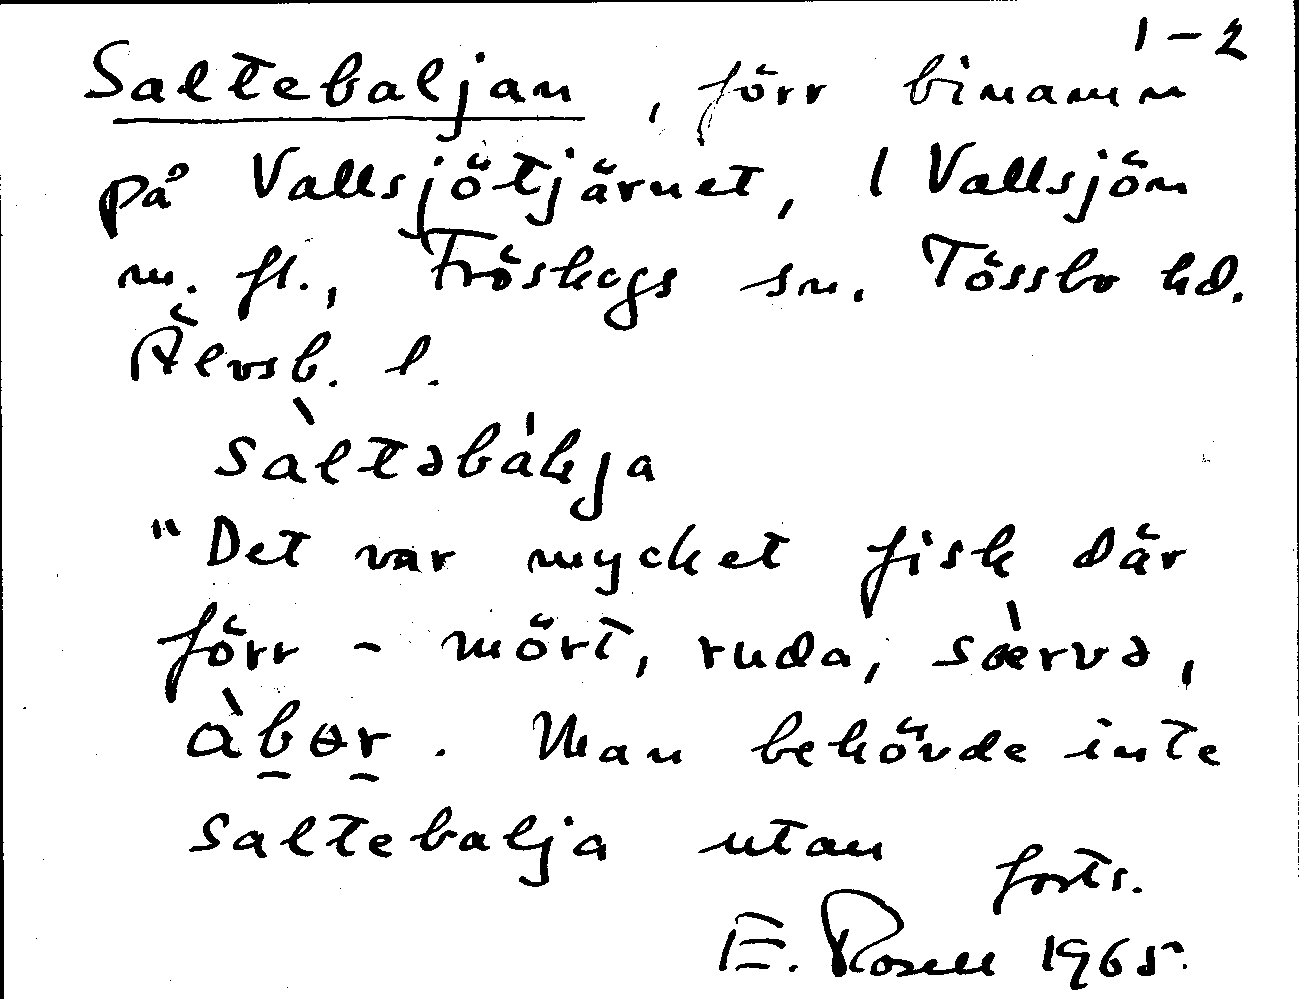 1-2
Saltebaljan, förr binamn
på Vallsjötjärnet, 1 Vallsjön
m. fl., Fröskogs sn. Tössbo hd.
Älvsb. l.
sàltəbál̨ja
"Det var mycket fisk där
förr - mört, ruda, sæ̀rvə,
àb̲ɵr̲. Man behövde inte
saltebalja utan
forts.
E. Rosell 1965.